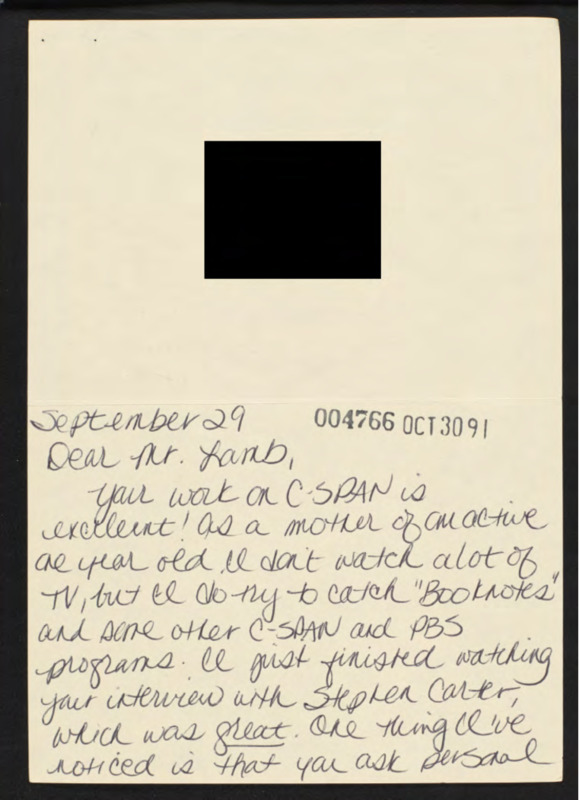 September 29
004766 OCT 30 91
Dear Mr. Lamb,
Your work on C-SPAN is
excellent! As a mother of an active
one year old I don't watch a lot of
TV, but I do try to catch "Booknotes"
and some other C-SPAN and PBS
programs. I just finished watching
your interview with Stephen Carter,
which was great. One thing I've
noticed is that you ask personal